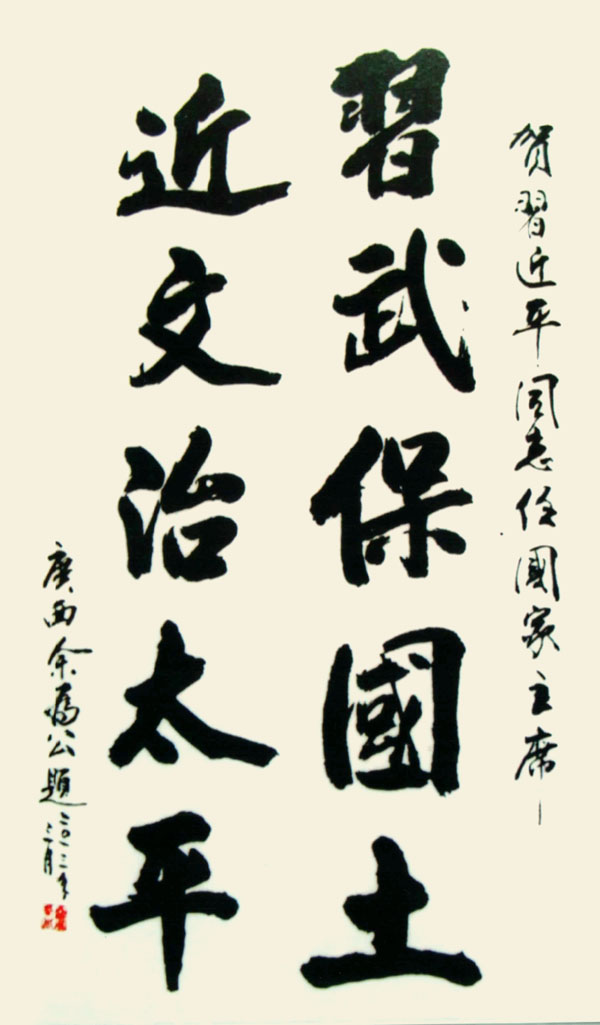 賀習近平同志任國家主席
習武保國土
近文治太平
廣西余為公題
二〇一三年
三月